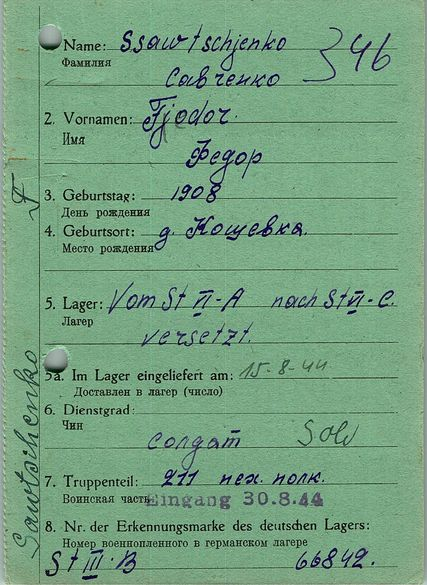 346
Name: Ssawtschjenko
Фамилия
Савченко
2. Vornamen: Fjodor.
Имя
Федор
3. Geburtstag: 1908
День рождения
4. Geburtsort: д. Кощевка.
Место рождения
5. Lager: Vom St VI-A nach St VI-C.
Лагер
versetzt.
5a. Im Lager eingeliefert am: 15-8-44
Доставлен в лагер (число)
6. Dienstgrad:
Чин
солдат Sold
7. Truppenteil: 211 пех. полк.
Воинская часть
Eingang 30.8.44
8. Nr. der Erkennungsmarke des deutschen Lagers:
Номер военнопленного в германском лагере
St III-B 66842.
Sawtschenko F